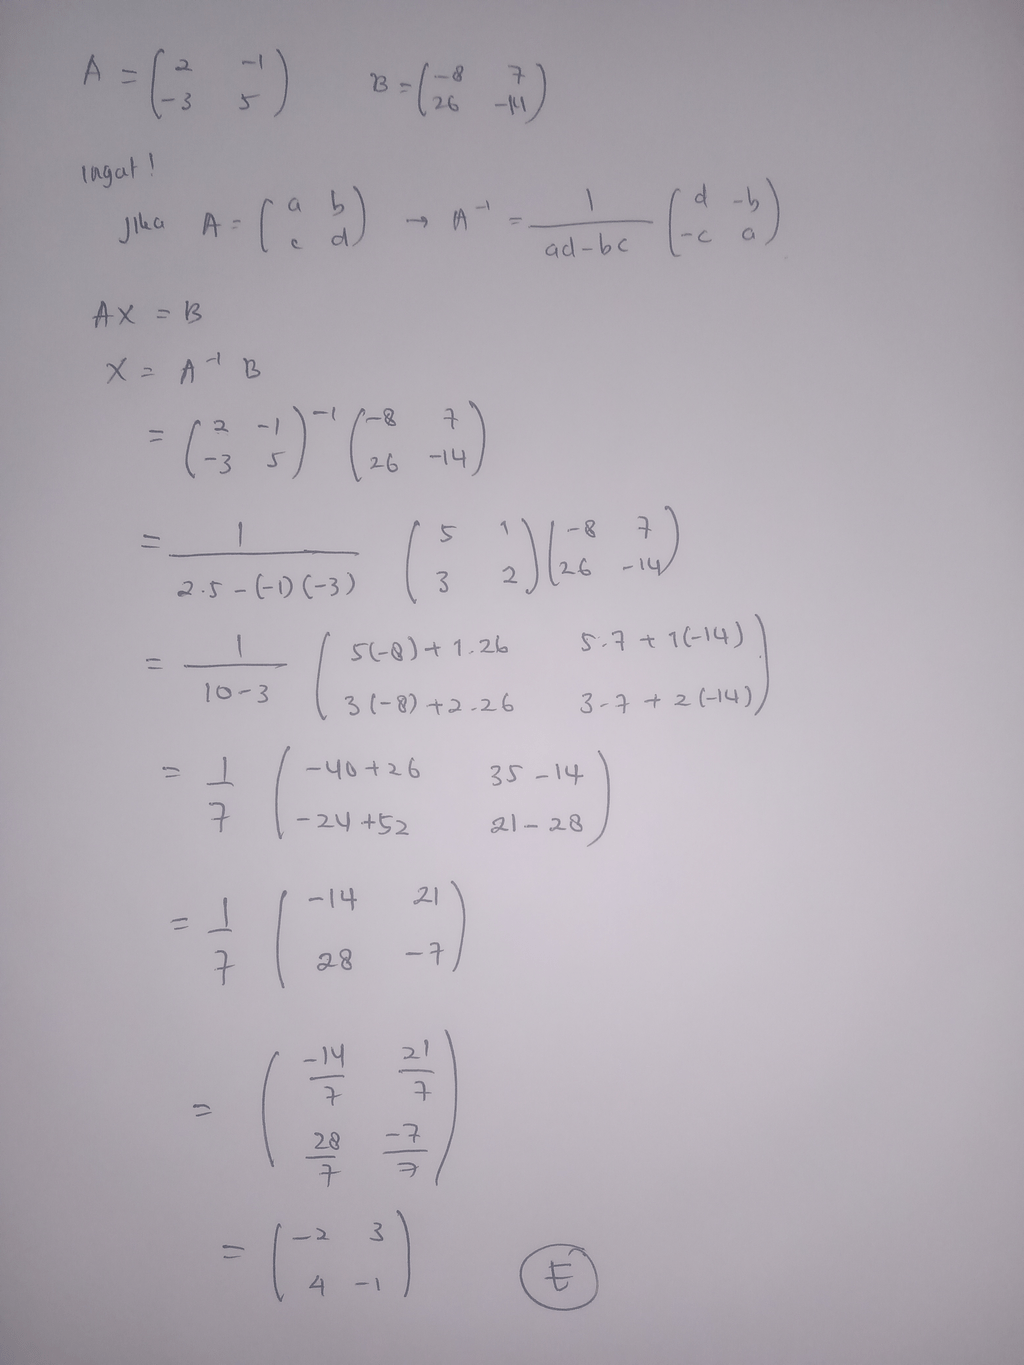 A = (2 -1 -3 5) B = (-8 7 26 -14)
Ingat!
Jika A = (a b c d) → A⁻¹ = 1/(ad-bc) (d -b -c a)
AX = B
X = A⁻¹ B
= (2 -1 -3 5)⁻¹ (-8 7 26 -14)
= 1/(2.5 - (-1)(-3)) (5 1 3 2) (-8 7 26 -14)
= 1/(10-3) (5(-8)+1.26 5.7+1(-14) 3(-8)+2.26 3.7+2(-14))
= 1/7 (-40+26 35-14 -24+52 21-28)
= 1/7 (-14 21 28 -7)
= (-14/7 21/7 28/7 -7/7)
= (-2 3 4 -1) E